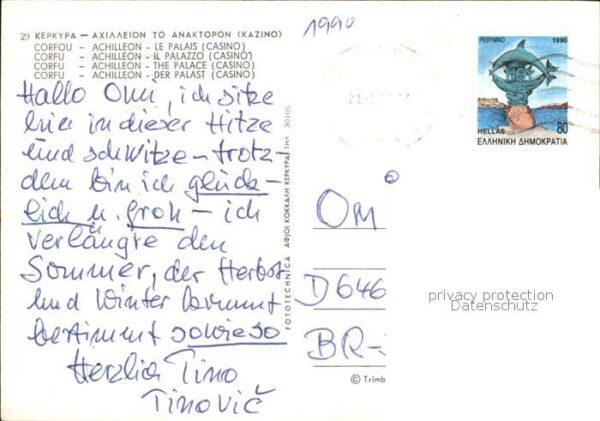 29 ΚΕΡΚΥΡΑ – ΑΧΙΛΛΕΙΟΝ ΤΟ ΑΝΑΚΤΟΡΟΝ (ΚΑΖΙΝΟ)
CORFOU – ACHILLEON - LE PALAIS (CASINO)
CORFU – ACHILLEON - IL PALAZZO (CASINO)
CORFU – ACHILLEON - THE PALACE (CASINO)
CORFU – ACHILLEON - DER PALAST (CASINO)
1990
Hallo Omi, ich sitze
hier in dieser Hitze
und schwitze – trotz-
dem bin ich glück-
lich u. froh – ich
verlängre den
Sommer, der Herbst
und Winter kommt
bestimmt sowieso
Herzlich Tino
Tinovič
FOTOTECHNICA ΑΦΙΟΙ ΚΟΚΚΑΛΗ ΚΕΡΚΥΡΑ ΤΗΛ. 30105
ΡΕΘΥΜΝΟ 1990
HELLAS 80
ΕΛΛΗΝΙΚΗ ΔΗΜΟΚΡΑΤΙΑ
Om
D646
BR-
privacy protection
Datenschutz
© Trimb